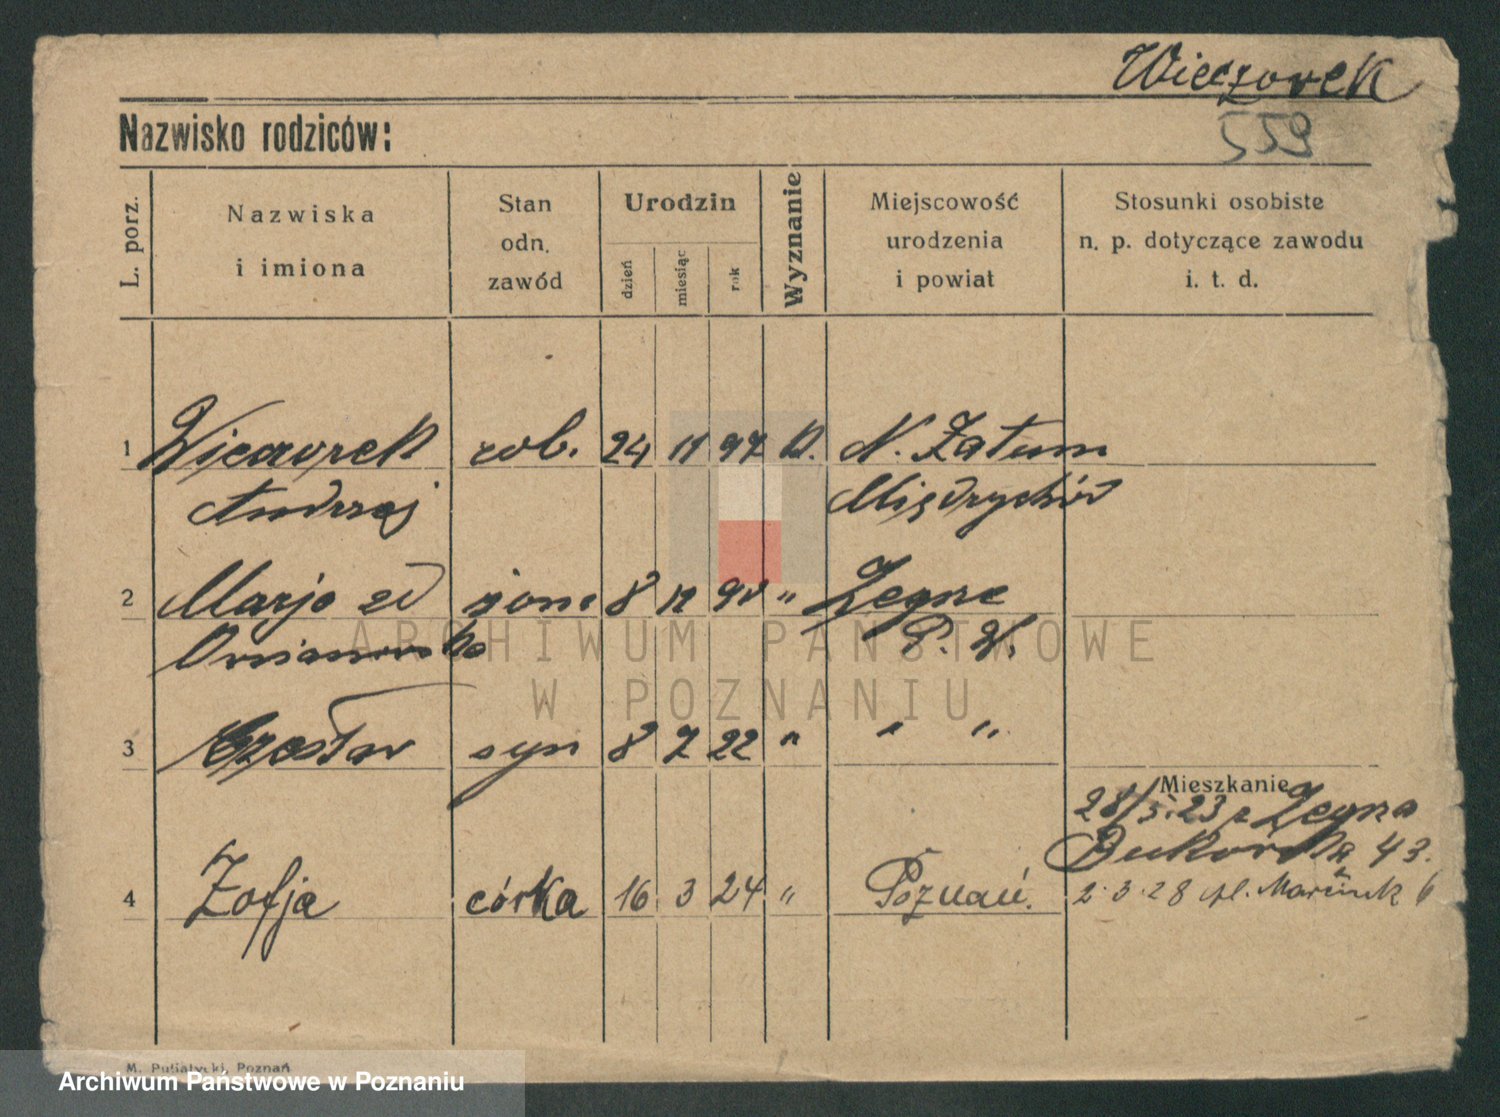 Wieczorek
559
Nazwisko rodziców:
L. porz.
Nazwiska
i imiona
Stan
odn.
zawód
Urodzin
dzień
miesiąc
rok
Wyznanie
Miejscowość
urodzenia
i powiat
Stosunki osobiste
n. p. dotyczące zawodu
i. t. d.
1 Wieczorek rob. 24 11 97 K. N. Zatum
Andrzej Międzychód
2 Marja żona 8 12 "
P. W.
3 Czesław syn 8 7 22 " " "
Mieszkanie
28/5.23 z
Bukowska 43.
4 Zofja córka 16 3 24 " Poznań. 2.3.28 pl. 6
ARCHIWUM PAŃSTWOWE
W POZNANIU
M. Putiatycki, Poznań
Archiwum Państwowe w Poznaniu